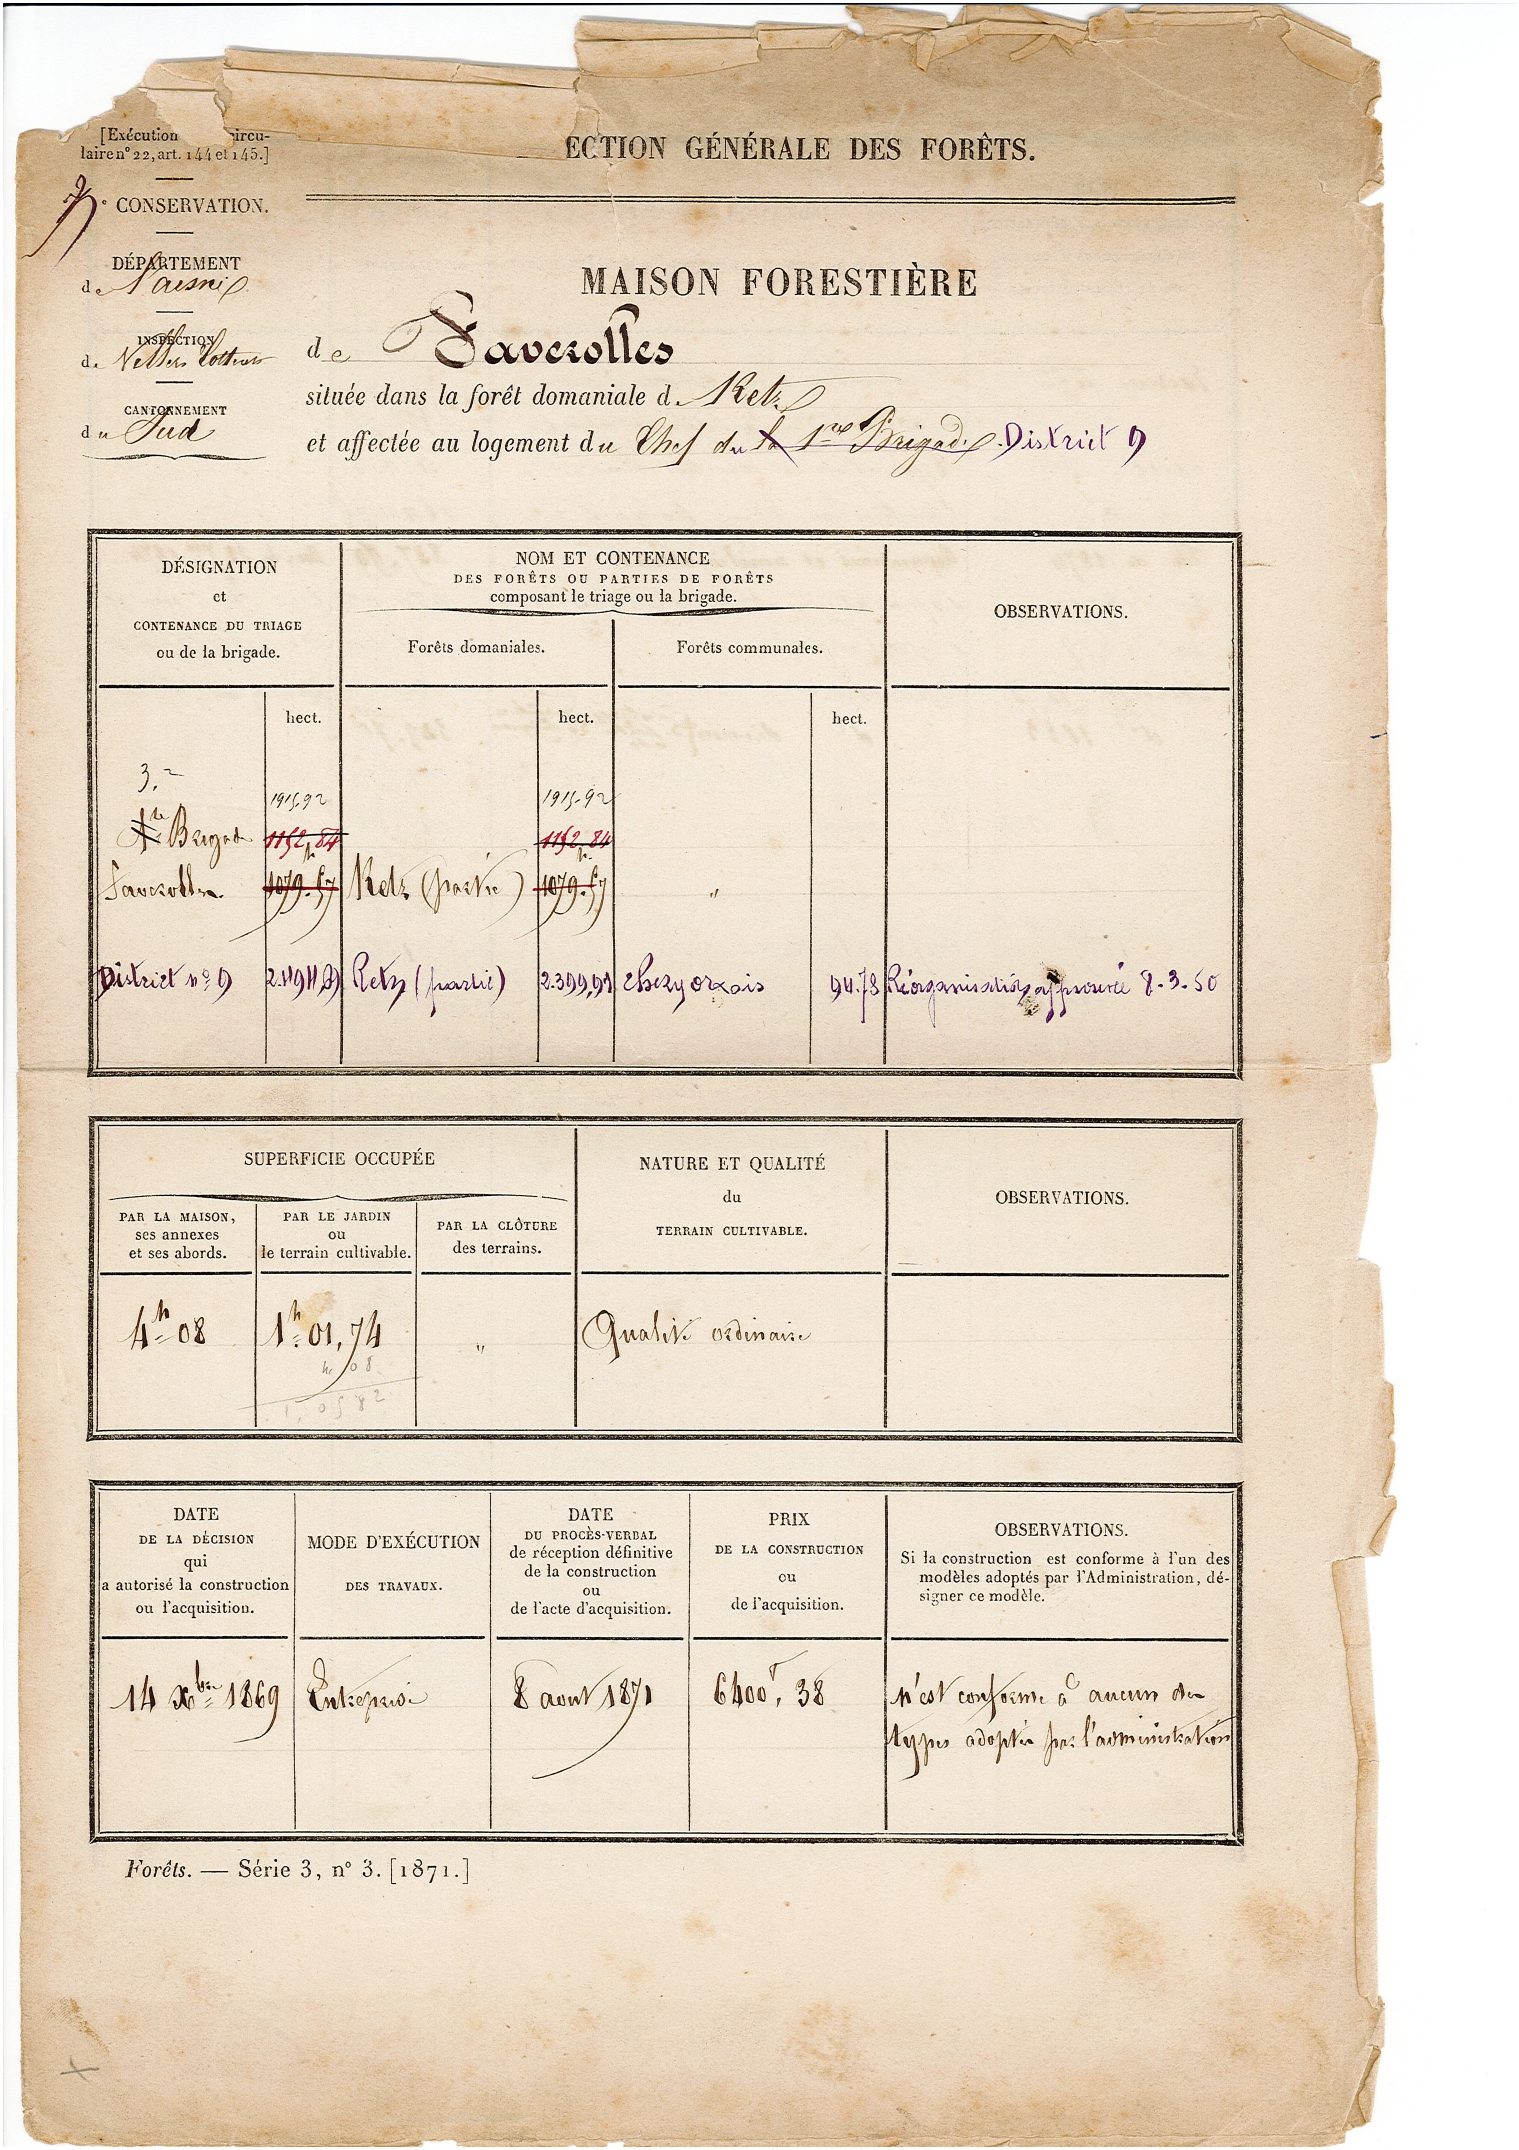 [Exécution circu-
laire n° 22, art. 144 et 145.]
ECTION GÉNÉRALE DES FORÊTS.
° CONSERVATION.
DÉPARTEMENT
de l'aisne
INSPECTION
de Villers Cotterets
CANTONNEMENT
du Sud
MAISON FORESTIÈRE
de Faverolles
située dans la forêt domaniale de Retz
et affectée au logement du Chef du la 1re Brigade District 9
DÉSIGNATION
et
CONTENANCE DU TRIAGE
ou de la brigade.
NOM ET CONTENANCE
DES FORÊTS OU PARTIES DE FORÊTS
composant le triage ou la brigade.
Forêts domaniales.
Forêts communales.
OBSERVATIONS.
hect. hect. hect.
3.e
1915.92 1915.92
1re Brigade 1152.84 1152.84
Faverolles 1079h.57 Retz (partie) 1079h.57 "
District n° 9 2.494,69 Retz (partie) 2.399,91 chezy orxois 94.78 Réorganisation approuvée 8.3.50
SUPERFICIE OCCUPÉE
PAR LA MAISON,
ses annexes
et ses abords.
PAR LE JARDIN
ou
le terrain cultivable.
PAR LA CLÔTURE
des terrains.
NATURE ET QUALITÉ
du
TERRAIN CULTIVABLE.
OBSERVATIONS.
4h 08 1h 01,74 " Qualité ordinaire
4 08
1,05 82
DATE
DE LA DÉCISION
qui
a autorisé la construction
ou l'acquisition.
MODE D'EXÉCUTION
DES TRAVAUX.
DATE
DU PROCÈS-VERBAL
de réception définitive
de la construction
ou
de l'acte d'acquisition.
PRIX
DE LA CONSTRUCTION
ou
de l'acquisition.
OBSERVATIONS.
Si la construction est conforme à l'un des
modèles adoptés par l'Administration, dé-
signer ce modèle.
14 Xbre 1869 Entreprise 8 aout 1871 6400f, 38 n'est conforme à aucun des
types adoptés par l'administration
Forêts. — Série 3, n° 3. [1871.]